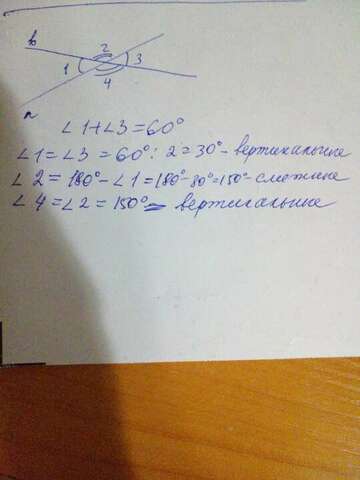 в
2
1
3
4
а
∠1+∠3=60°
∠1=∠3=60°:2=30°-вертикальные
∠2=180°-∠1=180°-30°=150°-смежные
∠4=∠2=150°-вертикальные